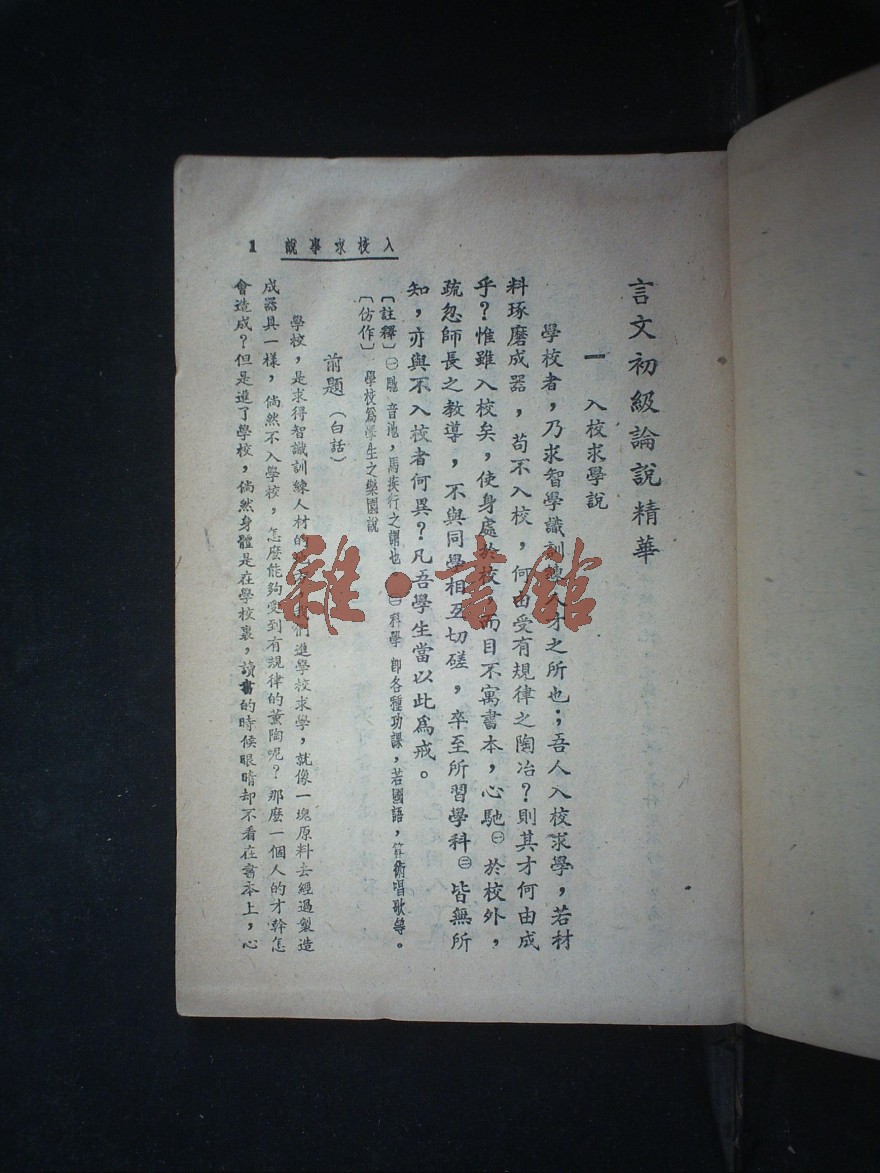 言文初級論說精華
一　入校求學說
學校者，乃求智學識訓練人才之所也；吾人入校求學，若材
料琢磨成器，苟不入校，何由受有規律之陶冶？則其才何由成
乎？惟雖入校矣，使身處於校，而目不寓書本，心馳㊀於校外，
疏忽師長之教導，不與同學相互切磋，卒至所習學科㊁皆無所
知，亦與不入校者何異？凡吾學生當以此爲戒。
〔註釋〕㊀馳　音池，馬疾行之謂也。㊁科學　卽各種功課，若國語，算術唱歌等。
〔仿作〕　學校爲學生之樂園說
前題（白話）
學校，是求得智識訓練人材的　我們進學校求學，就像一塊原料去經過製造
成器具一樣，倘然不入學校，怎麼能夠受到有規律的薰陶呢？那麼一個人的才幹怎
會造成？但是進了學校，倘然身體是在學校裏，讀書的時候眼睛却不看在書本上，心
入校求學說　1
雜·書館